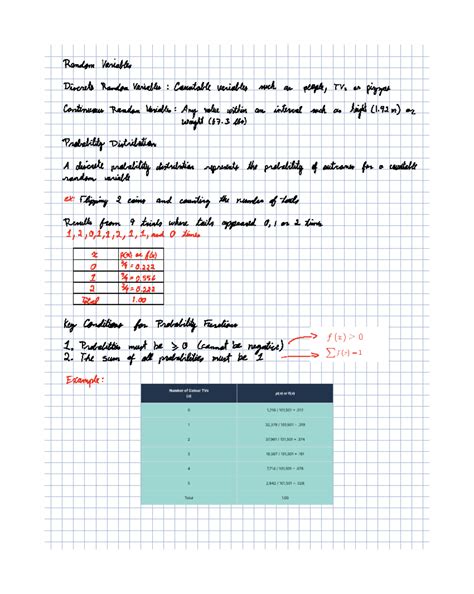 Random Variables
Discrete Random Variables : Countable variables such as people, TVs or pizzas
Continuous Random Variable : Any value within an interval such as height (1.92 m) or
weight (67.3 kg)
Probability Distribution
A discrete probability distribution represents the probability of outcomes for a countable
random variable
ex: Flipping 2 coins and counting the number of tails
Results from 9 trials where tails appeared 0, 1 or 2 times
1, 2, 0, 2, 1, 2, 1, 1, and 0 times
x p(x) or f(x)
0 = 0.222
1 = 0.556
2 = 0.222
Total 1.00
Key Conditions for Probability Functions
1. Probabilities must be ≥ 0 (cannot be negative) → f(x) > 0
2. The sum of all probabilities must be 1 → ∑ f(x) = 1
Example:
Number of Colour TVs p(x) or f(x)
(x)
0 / 101,501 =
1 / 101,501 =
2 / 101,501 =
3 / 101,501 =
4 / 101,501 =
5 / 101,501 =
Total 1.00